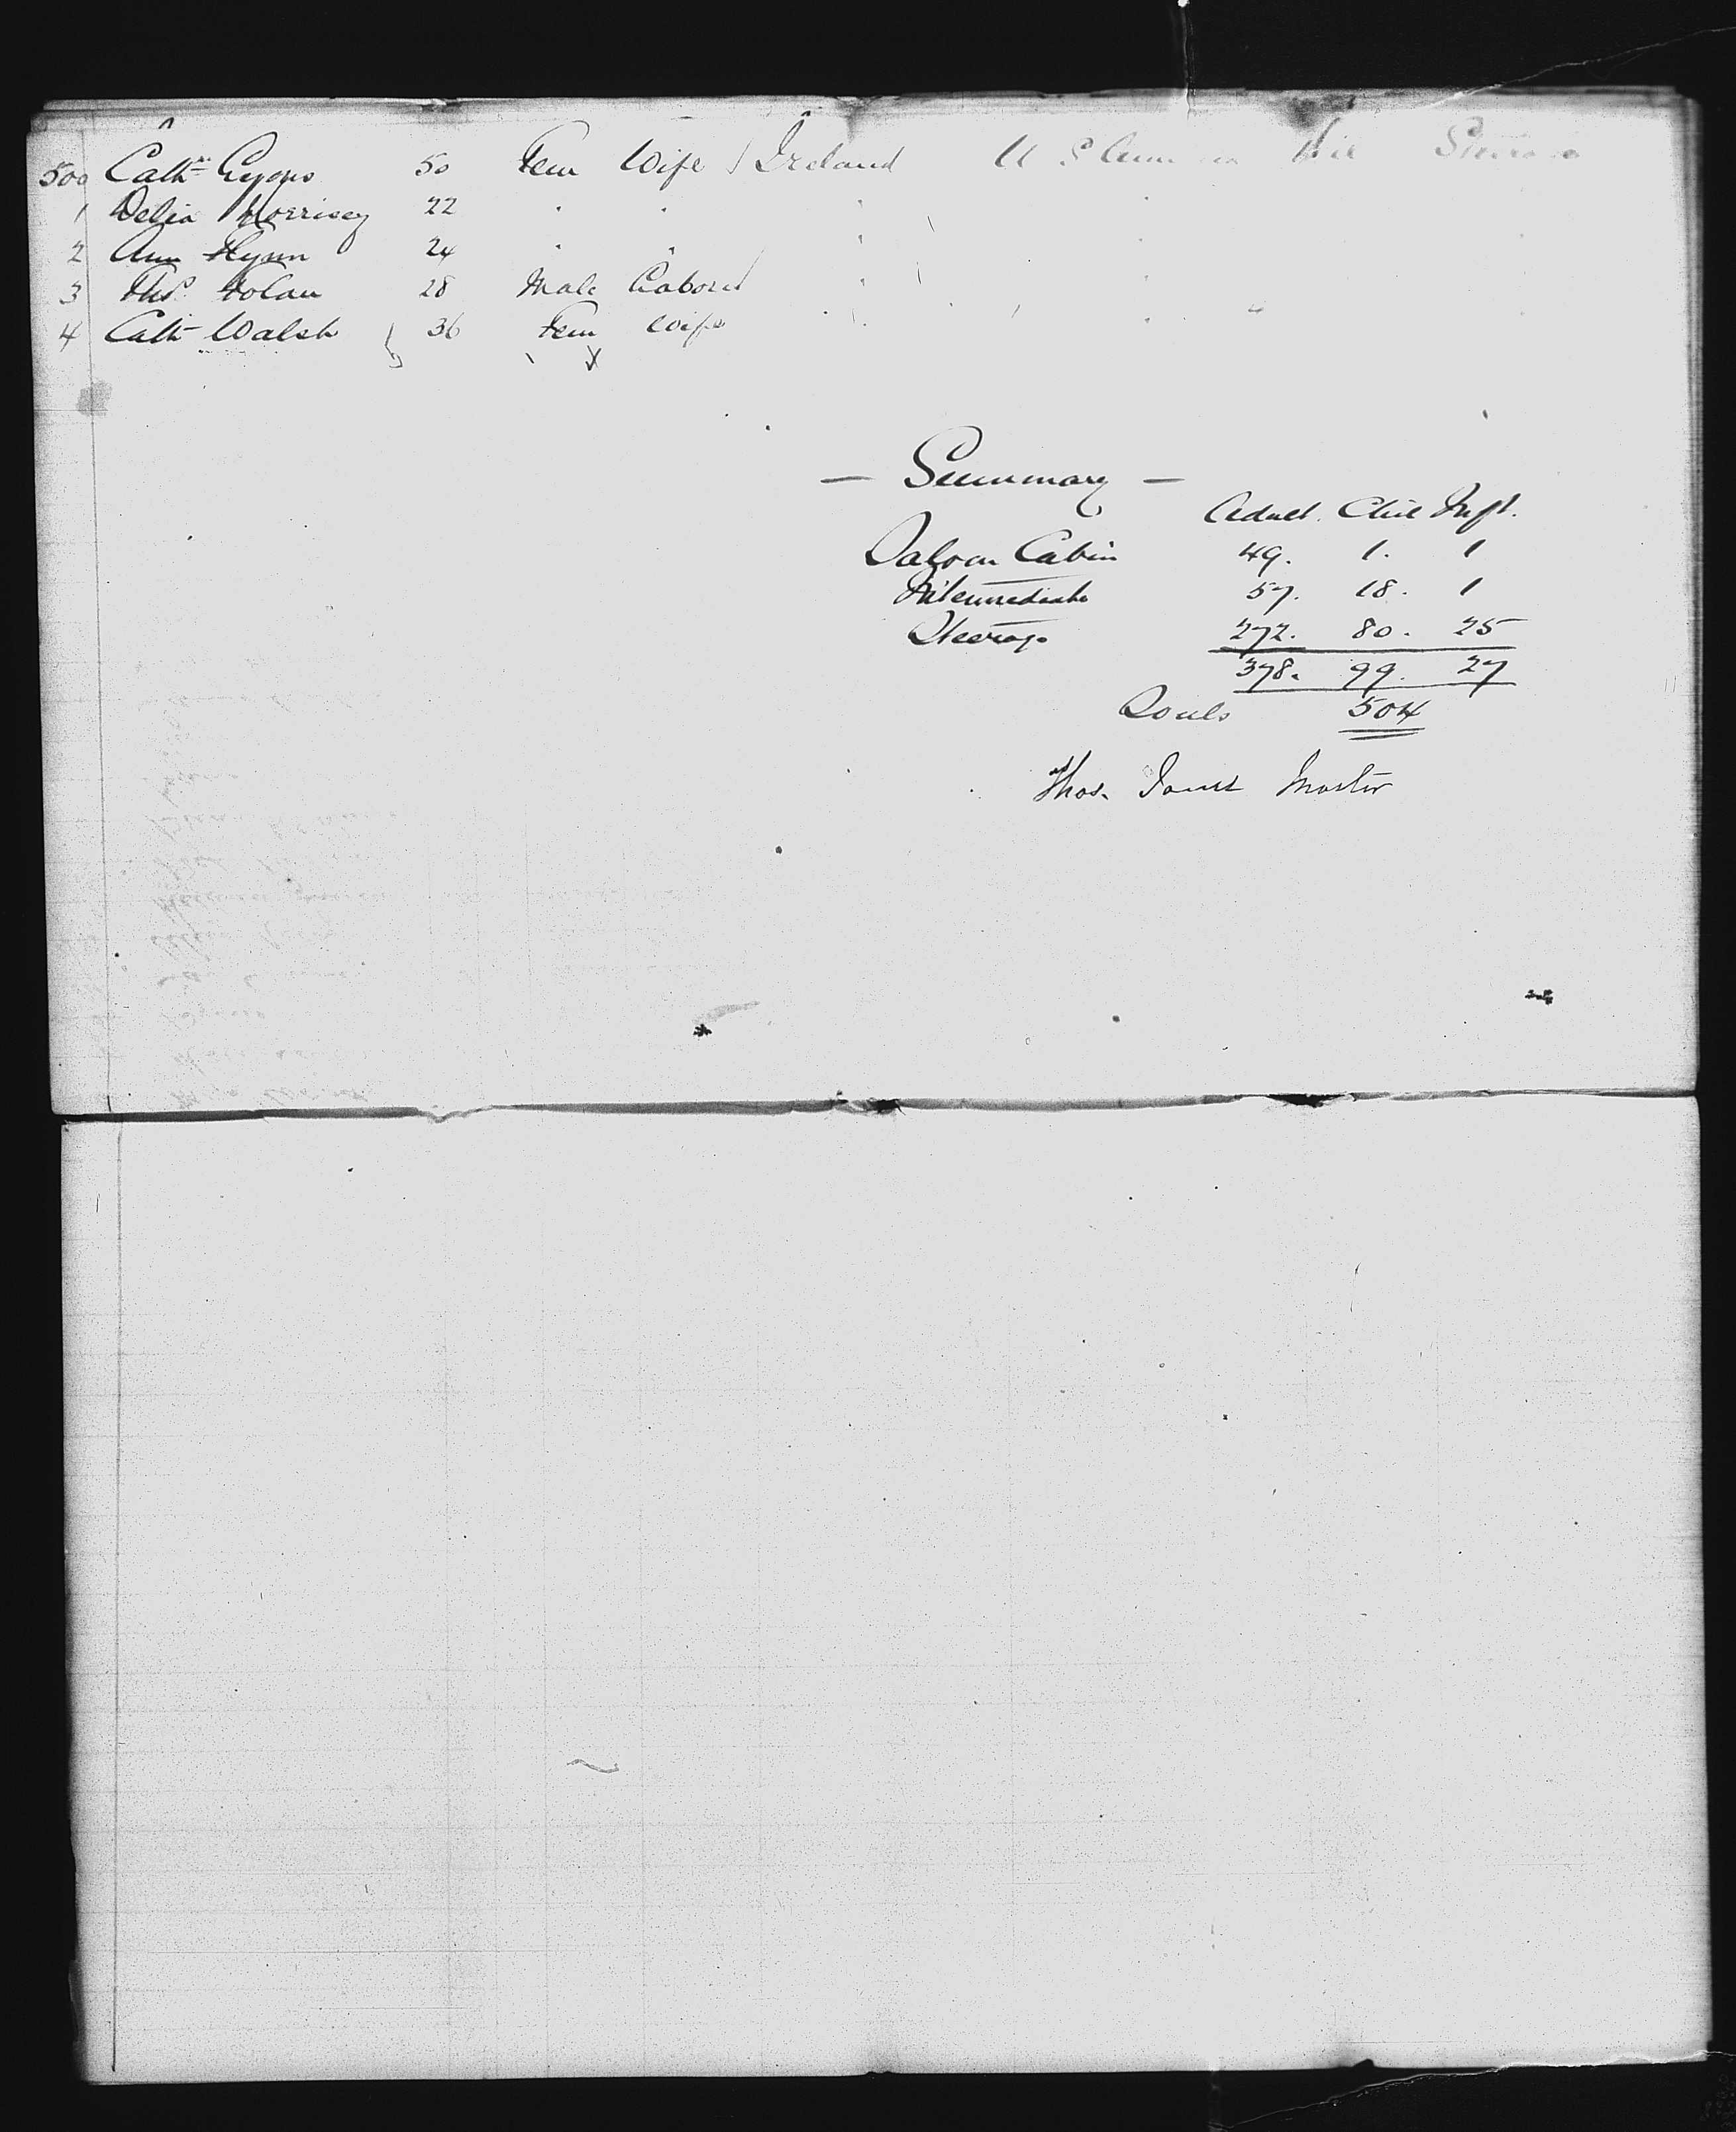 500 Cathne Lyons 50 Fem Wife Ireland U S
1 Delia Morrisey 22 " "
2 Ann Flynn 24 " "
3 Ths. Folan 28 Male Laborer
4 Cath Walsh 36 Fem Wife
— Summary —
Adult. Chil Inft.
Saloon Cabin 49. 1. 1
Intermediate 57. 18. 1
Steerage 272. 80. 25
378. 99. 27
Souls 504
Thos. Jones Master